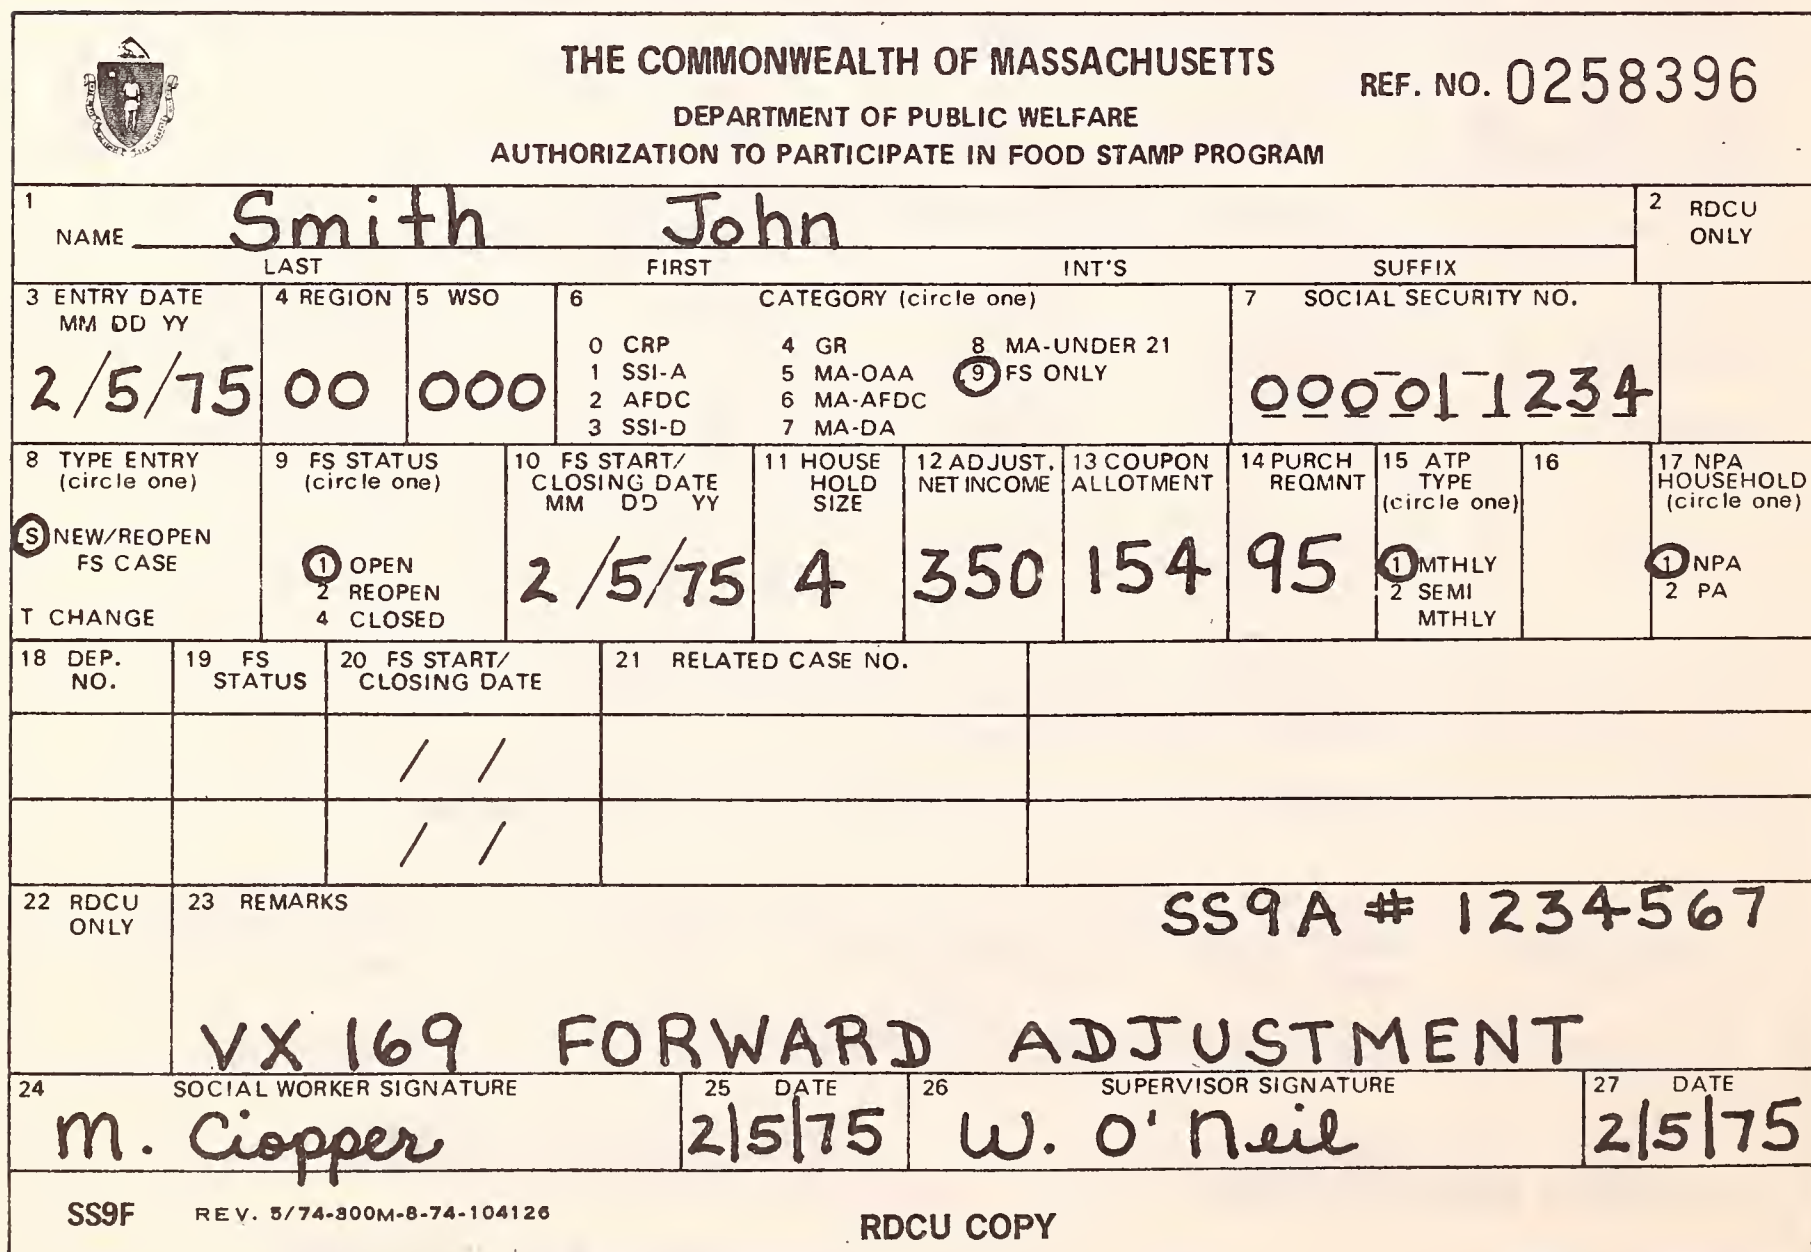 THE COMMONWEALTH OF MASSACHUSETTS
REF. NO. 0258396
DEPARTMENT OF PUBLIC WELFARE
AUTHORIZATION TO PARTICIPATE IN FOOD STAMP PROGRAM
1 NAME Smith John
LAST FIRST INT'S SUFFIX
2 RDCU ONLY
3 ENTRY DATE 4 REGION 5 WSO 6 CATEGORY (circle one) 7 SOCIAL SECURITY NO.
MM DD YY
0 CRP 4 GR 8 MA-UNDER 21
1 SSI-A 5 MA-OAA 9 FS ONLY
2 AFDC 6 MA-AFDC
3 SSI-D 7 MA-DA
2/5/75 00 000 000-01-1234
8 TYPE ENTRY (circle one)
S NEW/REOPEN FS CASE
T CHANGE
9 FS STATUS (circle one)
1 OPEN
2 REOPEN
4 CLOSED
10 FS START/ CLOSING DATE
MM DD YY
2/5/75
11 HOUSE HOLD SIZE
4
12 ADJUST. NET INCOME
350
13 COUPON ALLOTMENT
154
14 PURCH REQMNT
95
15 ATP TYPE (circle one)
1 MTHLY
2 SEMI MTHLY
16
17 NPA HOUSEHOLD (circle one)
1 NPA
2 PA
18 DEP. NO. 19 FS STATUS 20 FS START/ CLOSING DATE 21 RELATED CASE NO.
/ /
/ /
22 RDCU ONLY
23 REMARKS
SS9A # 1234567
VX 169 FORWARD ADJUSTMENT
24 SOCIAL WORKER SIGNATURE 25 DATE 26 SUPERVISOR SIGNATURE 27 DATE
M. Ciopper 2/5/75 W. O'Neil 2/5/75
SS9F REV. 5/74-300M-8-74-104126 RDCU COPY